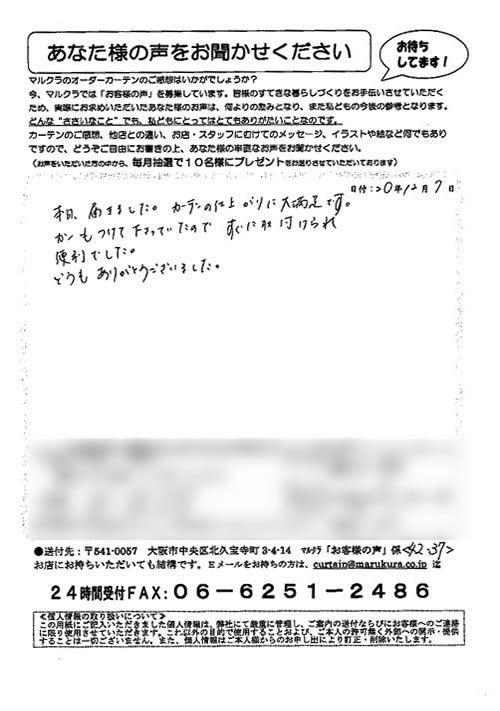 あなた様の声をお聞かせください
お待ち
してます!
マルクラのオーダーカーテンのご感想はいかがでしょうか?
今、マルクラでは「お客様の声」を募集しています。皆様のすてきな暮らしづくりをお手伝いさせていただく
ため、実際にお求めいただいたあなた様のお声は、何よりの励みとなり、また私どもの今後の参考となります。
どんな“ささいなこと”でも、私どもにとってはとてもありがたいことなのです。
カーテンのご感想、他店との違い、お店・スタッフにむけてのメッセージ、イラストや絵など何でもあり
ですので、どうぞご自由にお書きの上、あなた様の率直なお声をお聞かせください。
(お声をいただいた方の中から、毎月抽選で10名様にプレゼントをお送りさせていただいております)
日付:20年12月7日
本日、届きました。カーテンの仕上がりに大満足です。
カンもつけて下さっていたので すぐに取付けられ
便利でした。
どうもありがとうございました。
●送付先:〒541-0057 大阪市中央区北久宝寺町3-4-14 マルクラ「お客様の声」係<42-37>
お店にお持ちいただいても結構です。Eメールをお持ちの方は、curtain@marukura.co.jp 迄
24時間受付FAX:06-6251-2486
<個人情報の取り扱いについて>
この用紙にご記入いただきました個人情報は、弊社にて厳重に管理し、ご案内の送付ならびにお客様へのご連絡
に限り使用させていただきます。これ以外の目的で使用することおよび、ご本人の許可無く外部への開示・提供
することは一切ございません。また、個人情報はご本人様からのお申し出により訂正・削除いたします。